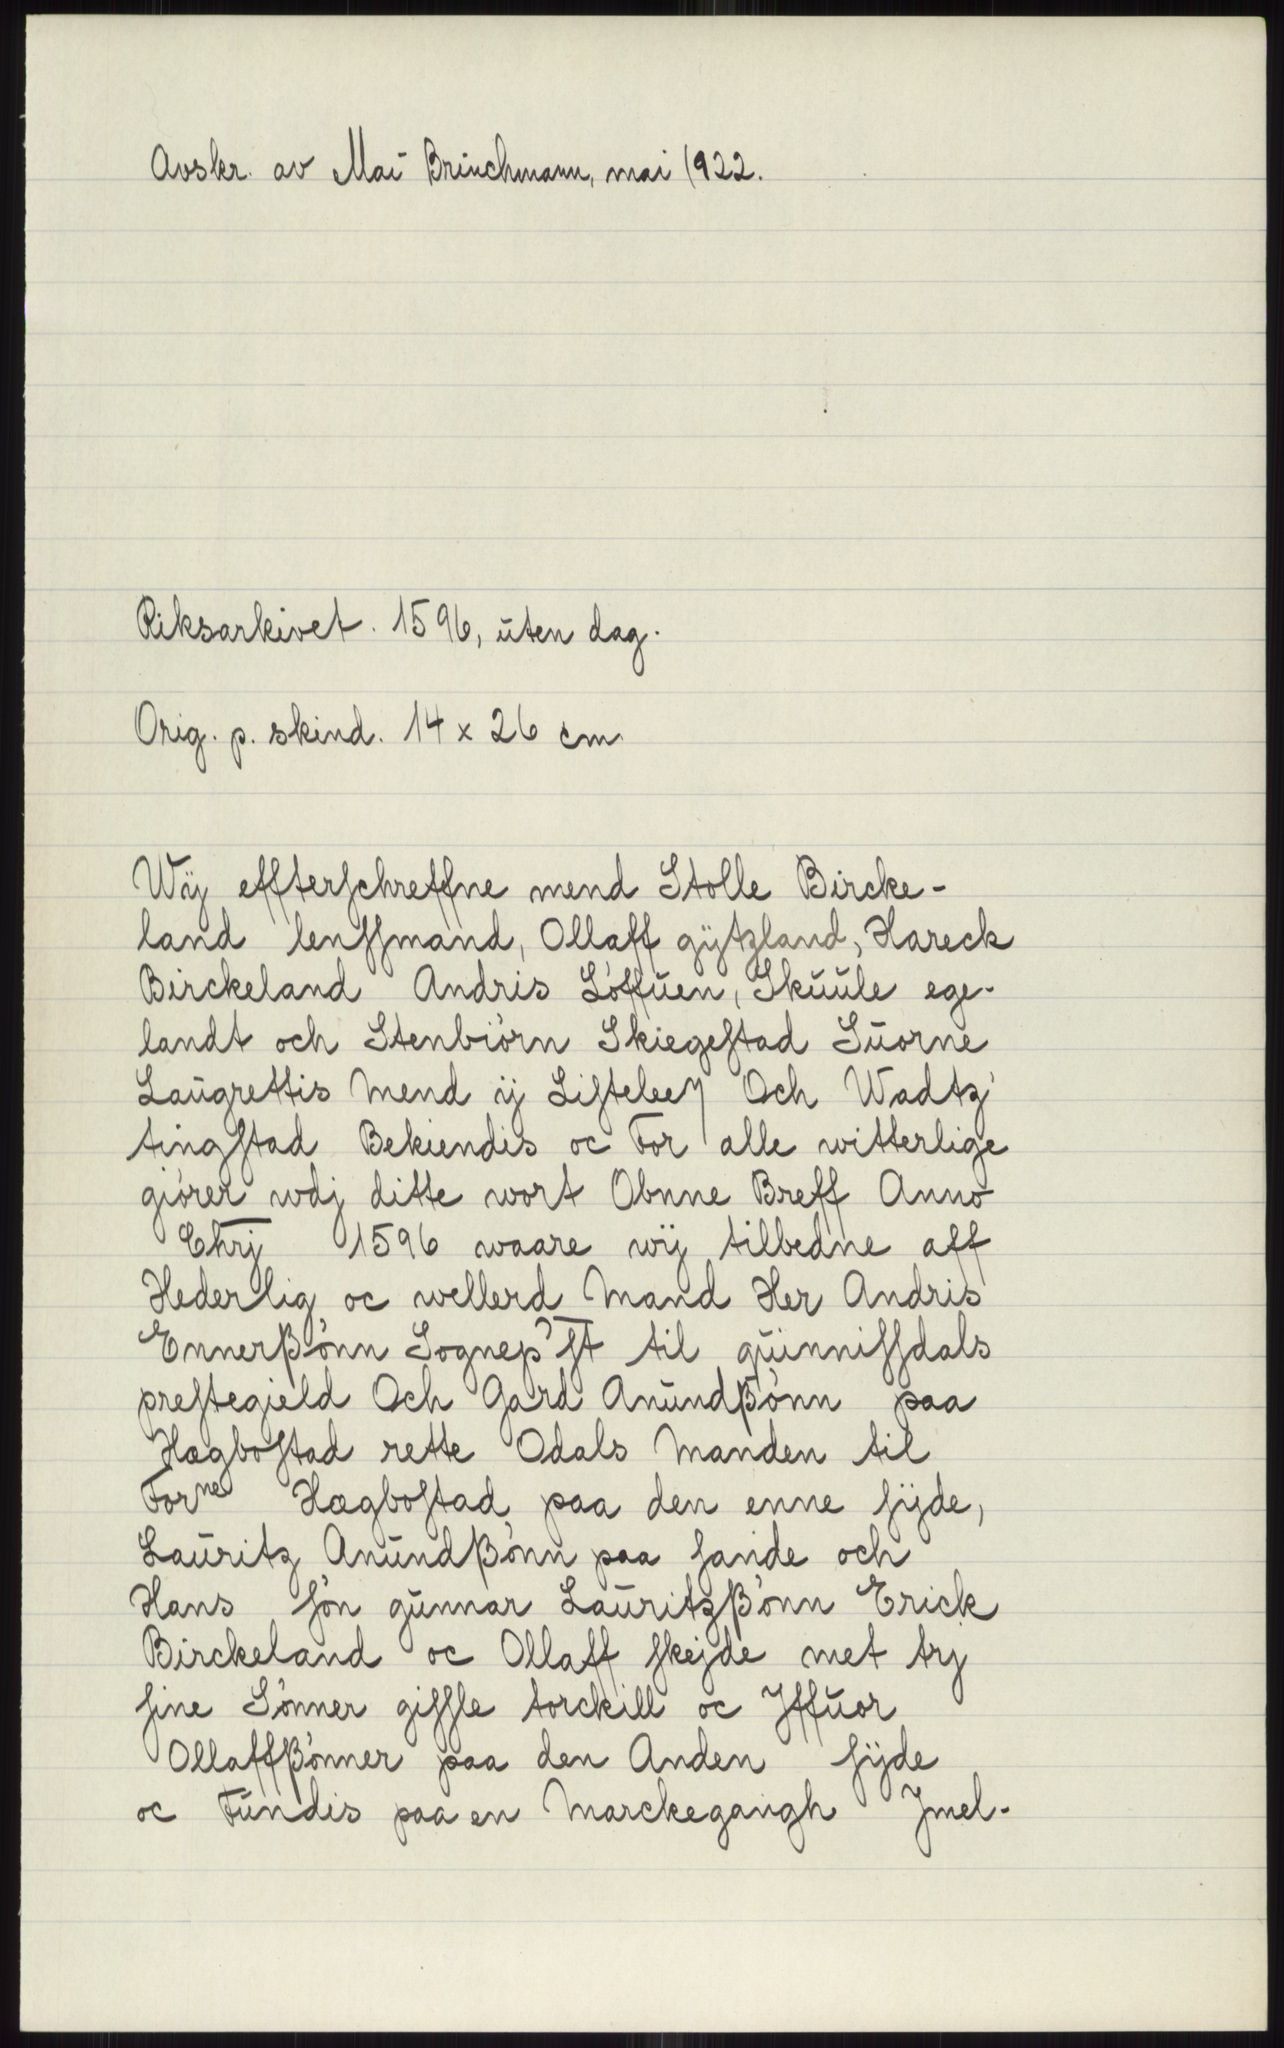 Avskr. av Mai Brinchmann, mai 1922.
Riksarkivet. 1596, uten dag.
Orig. p. skind. 14 x 26 cm
Wij effterschreffne mend Stolle Bircke-
land lenssmand, Ollaff gytzland, Hareck
Birckeland Andris Löffuen, Skuule ege-
landt och Stenbiörn Skiegestad Suorne
Laugrettis Mend ij Listeleen Och Wadtz
tingstad Bekiendis oc For alle witterlige
giörer wdj ditte wort Obnne Breff Anno
Chrj 1596 waare wij tilbedne aff
Hederlig oc wellerd Mand Her Andris
Ennerßönn Sognep'st til guinnissdals
prestegield Och Gard Anundßönn paa
Hægbostad rette Odals Manden til
Forne Hægbostad paa den enne sijde,
Lauritz Anundßönn paa sande och
Hans sön gunnar Lauritzßönn Erick
Birckeland oc Ollaff skejde met trj
sine Sönner gissle torckill oc Jffuor
Ollaffßönner paa den Anden sijde
oc Fundis paa en Marckegangh Jmel-